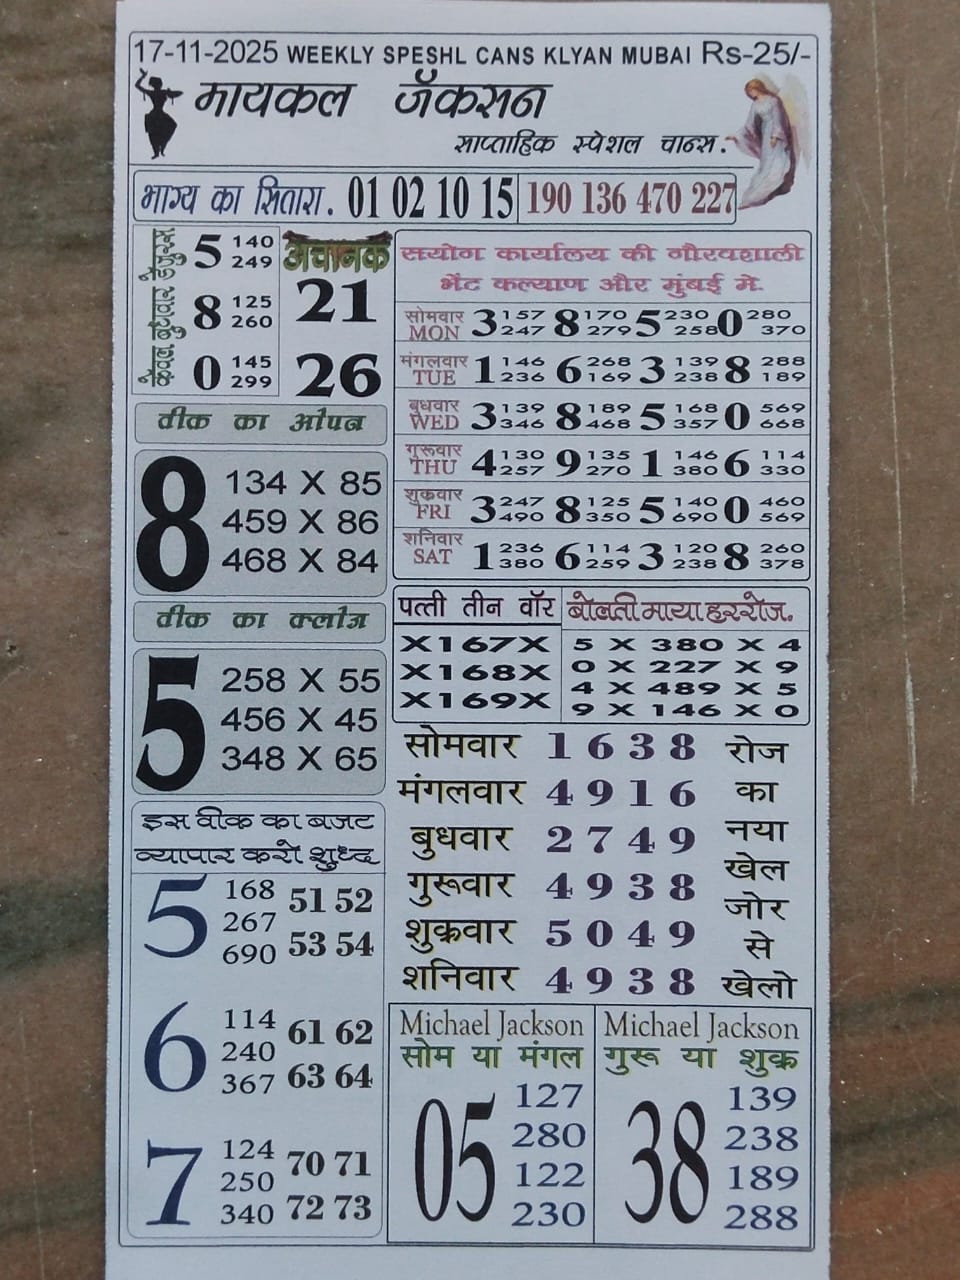 17-11-2025 WEEKLY SPESHL CANS KLYAN MUBAI Rs-25/-
मायकल जॅकसन
साप्ताहिक स्पेशल चान्स.
भाग्य का सितारा. 01 02 10 15 190 136 470 227
केवल बुधवार
5 140 249
8 125 260
0 145 299
अचानक
21
26
वीक का ओपन
8
134 X 85
459 X 86
468 X 84
वीक का क्लोज
5
258 X 55
456 X 45
348 X 65
इस वीक का बजट
व्यापार करो शुध्द
5 168 267 690 51 52 53 54
6 114 240 367 61 62 63 64
7 124 250 340 70 71 72 73
सयोग कार्यालय की गौरवशाली
भेंट कल्याण और मुंबई मे.
सोमवार MON 3 157 247 8 170 279 5 230 258 0 280 370
मंगलवार TUE 1 146 236 6 268 169 3 139 238 8 288 189
बुधवार WED 3 139 346 8 189 468 5 168 357 0 569 668
गुरूवार THU 4 130 257 9 135 270 1 146 380 6 114 330
शुक्रवार FRI 3 247 490 8 125 350 5 140 690 0 460 569
शनिवार SAT 1 236 380 6 114 259 3 120 238 8 260 378
पत्ती तीन वॉर
X167X
X168X
X169X
बोलती माया हररोज.
5 X 380 X 4
0 X 227 X 9
4 X 489 X 5
9 X 146 X 0
सोमवार 1 6 3 8
मंगलवार 4 9 1 6
बुधवार 2 7 4 9
गुरूवार 4 9 3 8
शुक्रवार 5 0 4 9
शनिवार 4 9 3 8
रोज
का
नया
खेल
जोर
से
खेलो
Michael Jackson
सोम या मंगल
05
127
280
122
230
Michael Jackson
गुरू या शुक्र
38
139
238
189
288